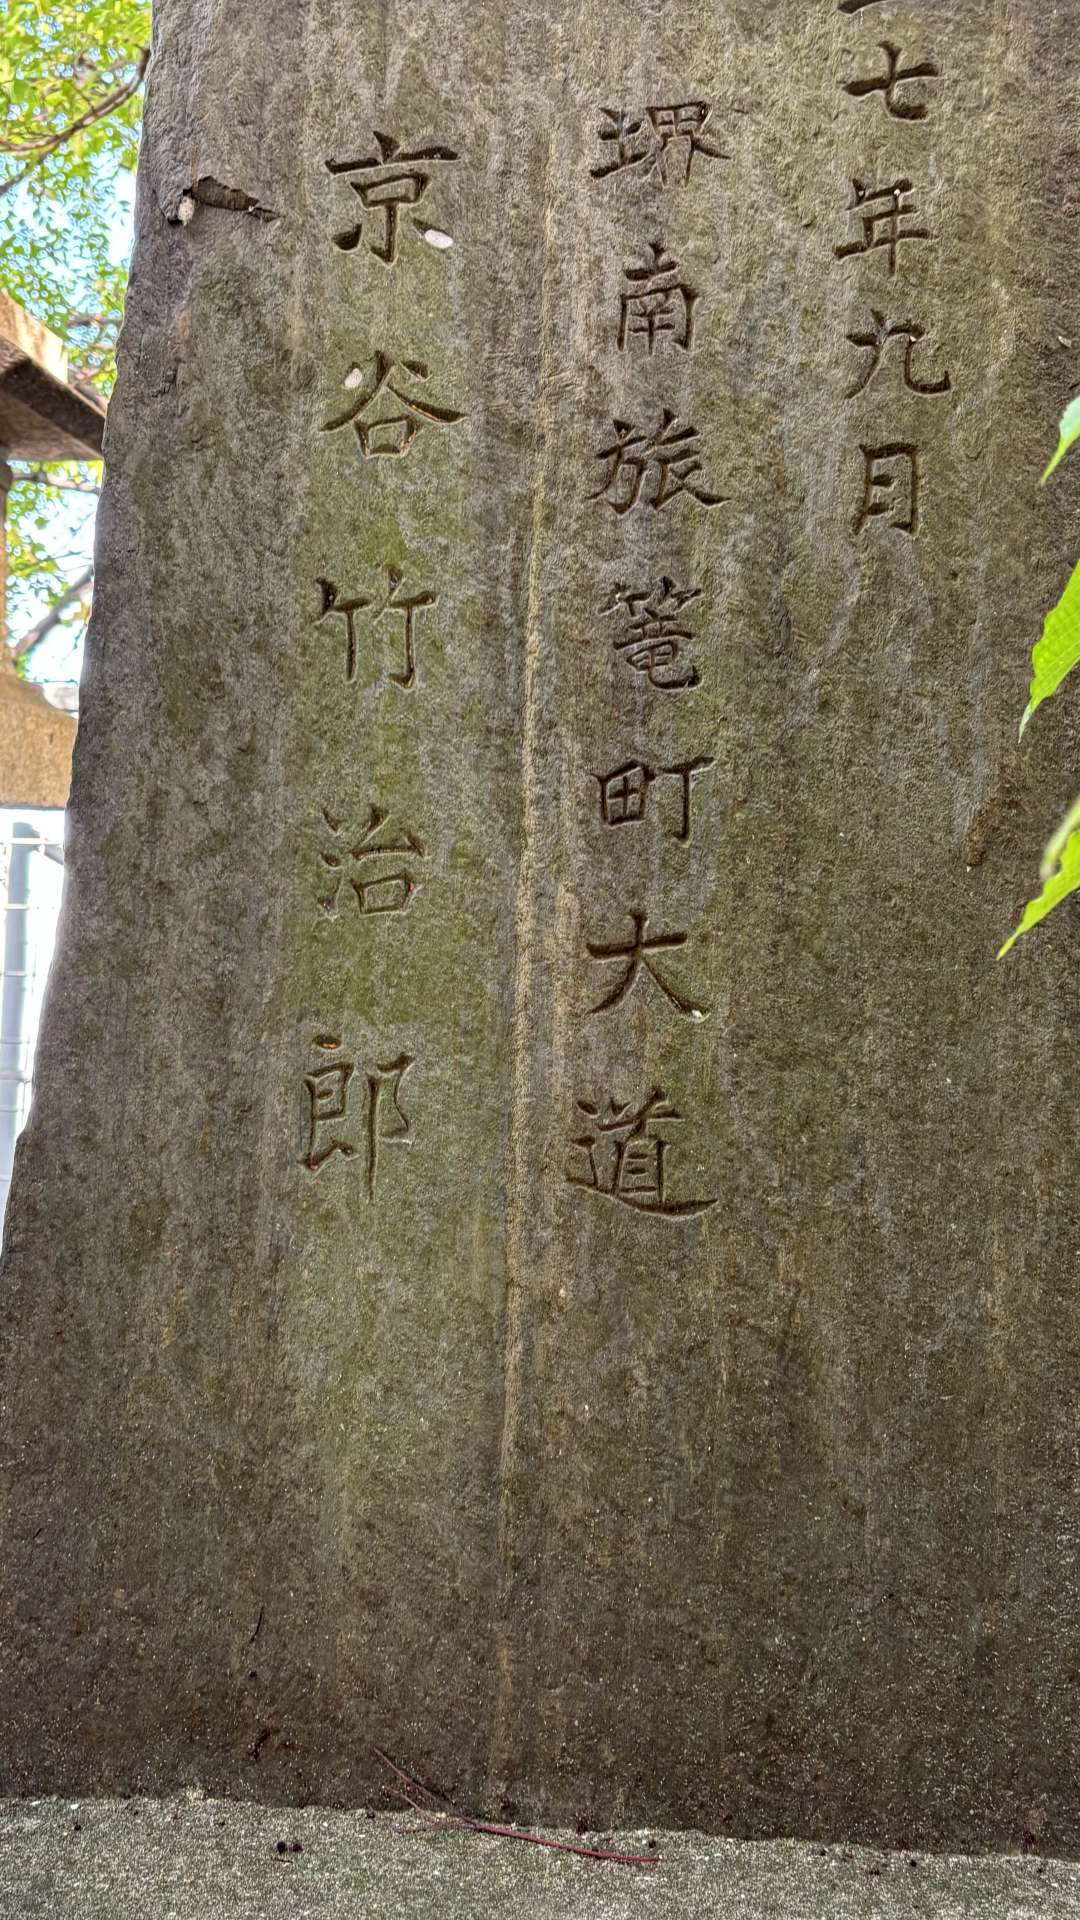 七年九月
堺南旅篭町大道
京谷竹治郎